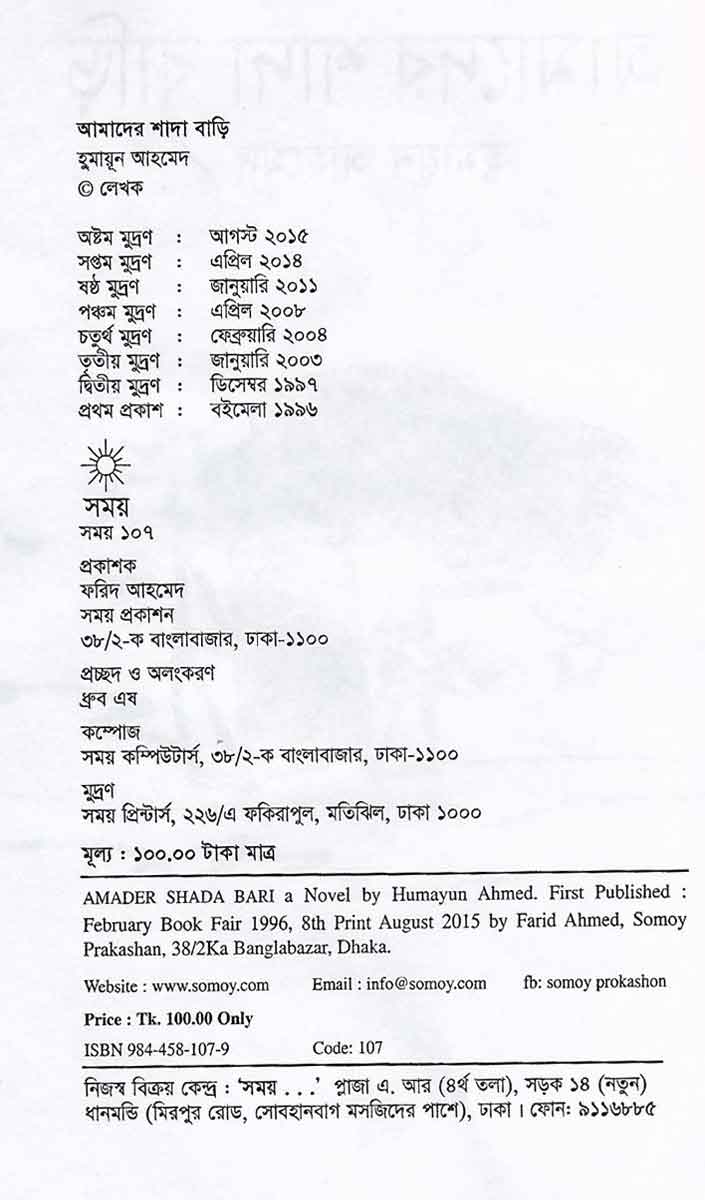 আমাদের শাদা বাড়ি
হুমায়ূন আহমেদ
© লেখক
অষ্টম মুদ্রণ : আগস্ট ২০১৫
সপ্তম মুদ্রণ : এপ্রিল ২০১৪
ষষ্ঠ মুদ্রণ : জানুয়ারি ২০১১
পঞ্চম মুদ্রণ : এপ্রিল ২০০৮
চতুর্থ মুদ্রণ : ফেব্রুয়ারি ২০০৪
তৃতীয় মুদ্রণ : জানুয়ারি ২০০৩
দ্বিতীয় মুদ্রণ : ডিসেম্বর ১৯৯৭
প্রথম প্রকাশ : বইমেলা ১৯৯৬
সময়
সময় ১০৭
প্রকাশক
ফরিদ আহমেদ
সময় প্রকাশন
৩৮/২-ক বাংলাবাজার, ঢাকা-১১০০
প্রচ্ছদ ও অলংকরণ
ধ্রুব এষ
কম্পোজ
সময় কম্পিউটার্স, ৩৮/২-ক বাংলাবাজার, ঢাকা-১১০০
মুদ্রণ
সময় প্রিন্টার্স, ২২৬/এ ফকিরাপুল, মতিঝিল, ঢাকা ১০০০
মূল্য : ১০০.০০ টাকা মাত্র
AMADER SHADA BARI a Novel by Humayun Ahmed. First Published :
February Book Fair 1996, 8th Print August 2015 by Farid Ahmed, Somoy
Prakashan, 38/2Ka Banglabazar, Dhaka.
Website : www.somoy.com Email : info@somoy.com fb: somoy prokashon
Price : Tk. 100.00 Only
ISBN 984-458-107-9 Code: 107
নিজস্ব বিক্রয় কেন্দ্র : ‘সময় . . .’ প্লাজা এ. আর (৪র্থ তলা), সড়ক ১৪ (নতুন)
ধানমন্ডি (মিরপুর রোড, সোবহানবাগ মসজিদের পাশে), ঢাকা । ফোন: ৯১১৬৮৮৫